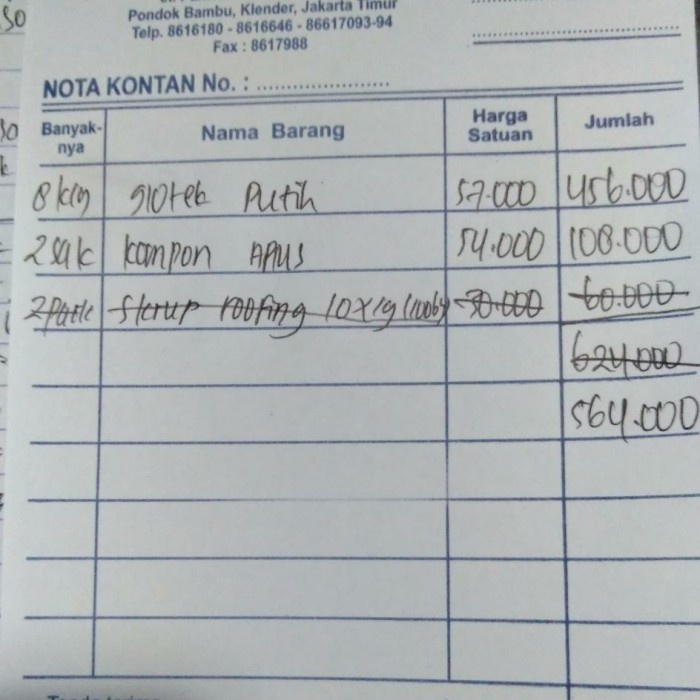 Pondok Bambu, Klender, Jakarta Timur
Telp. 8616180 - 8616646 - 86617093-94
Fax : 8617988
NOTA KONTAN No. : ........................
Banyak-nya Nama Barang Harga Satuan Jumlah
8 kg Glotek Putih 57.000 456.000
2 sak kompon APlus 54.000 108.000
2 Pack skrup roofing 10x19 30.000 60.000
624.000
564.000